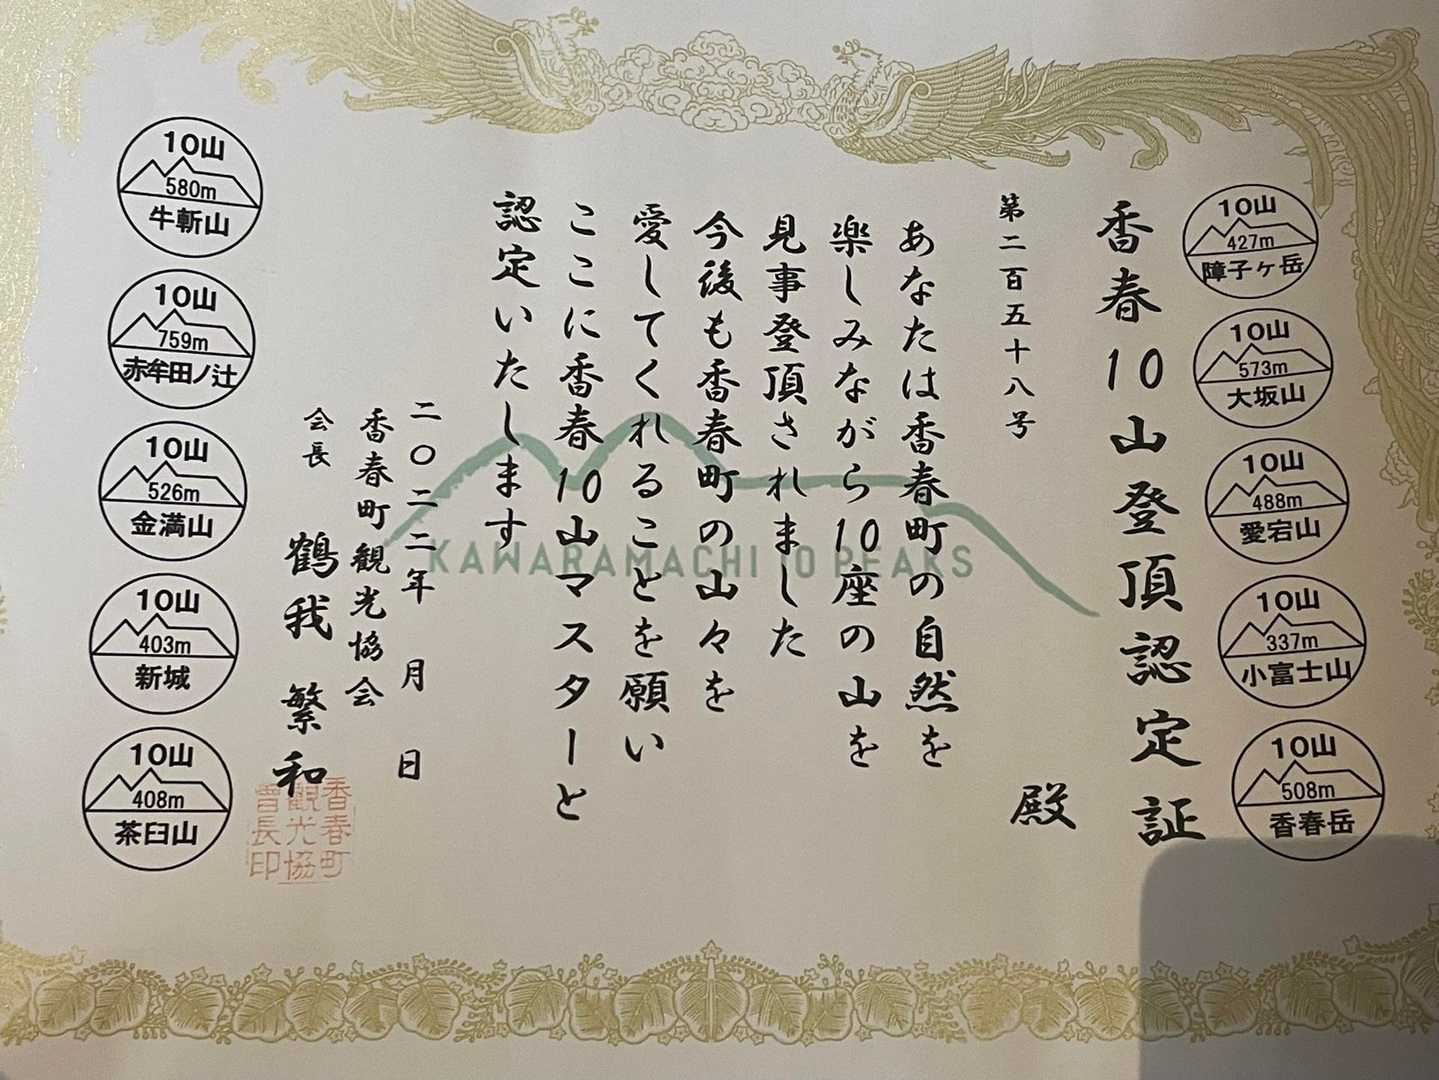 香春10山登頂認定証
第二百五十八号
殿
あなたは香春町の自然を
楽しみながら10座の山を
見事登頂されました
今後も香春町の山々を
愛してくれることを願い
ここに香春10山マスターと
認定いたします
二〇二二年 月 日
香春町観光協会
会長 鶴我 繁和
香春町
観光協
會長印
KAWARAMACHI 10 PEAKS
10山
427m
障子ヶ岳
10山
573m
大坂山
10山
488m
愛宕山
10山
337m
小富士山
10山
508m
香春岳
10山
580m
牛斬山
10山
759m
赤牟田ノ辻
10山
526m
金満山
10山
403m
新城
10山
408m
茶臼山